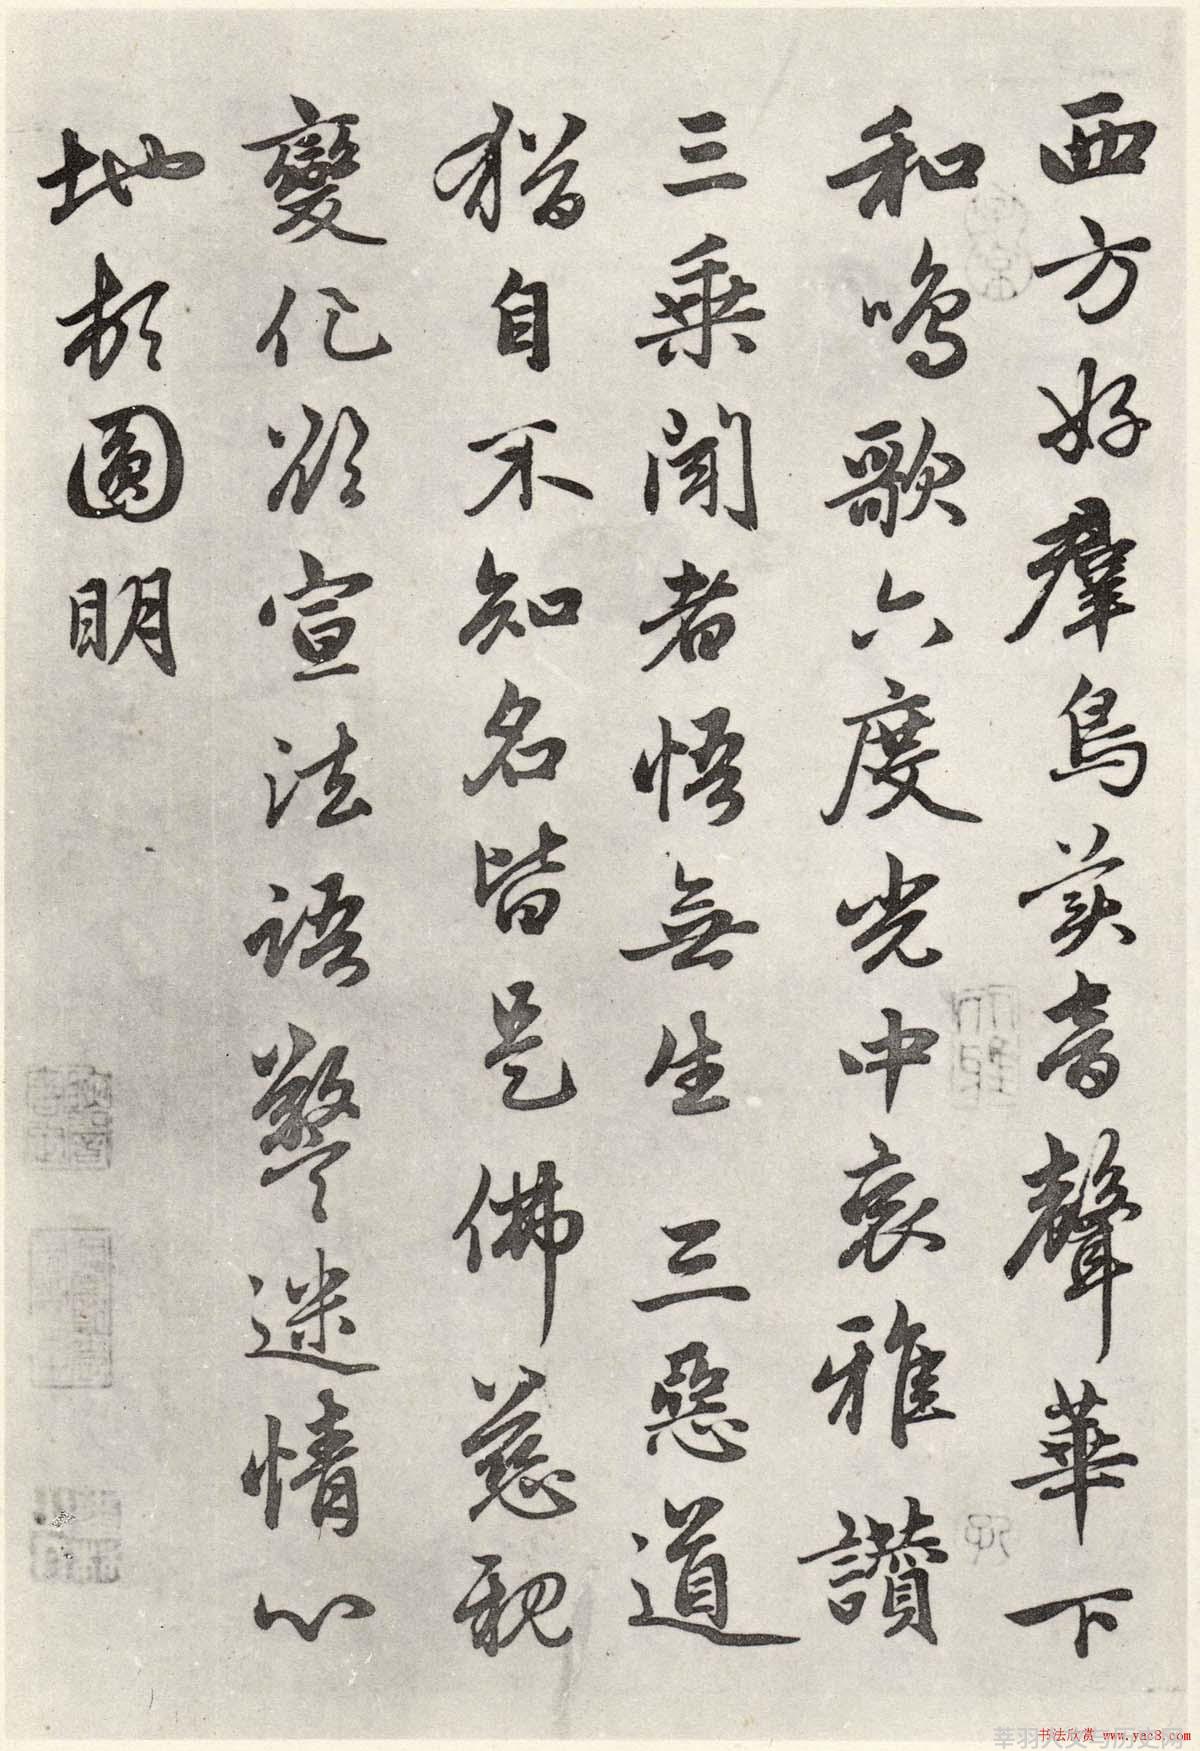 西方好羣鳥美音聲華下
和鳴歌六度光中哀雅讃
三乗聞者悟無生三惡道
猶自不知名皆是佛慈親
變化欲宣法語警迷情心
地頓圓明
书法欣赏 www.yac8.com